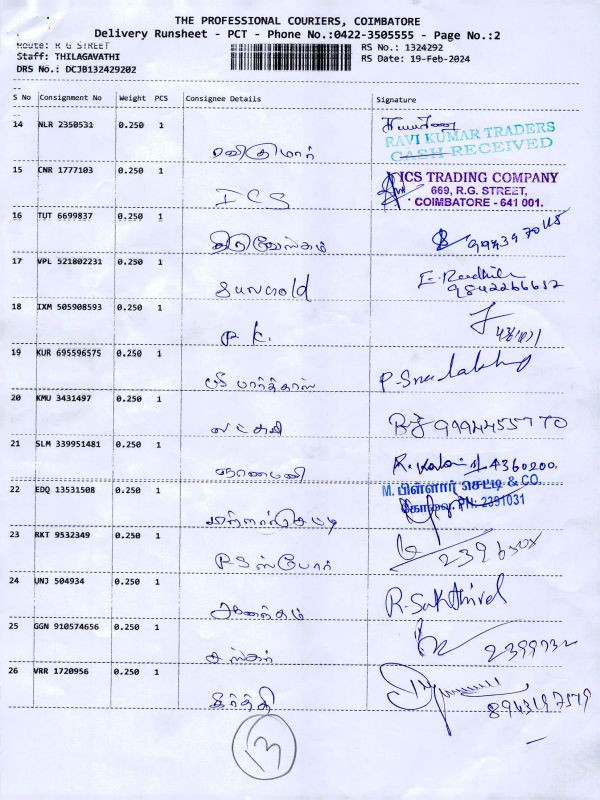 THE PROFESSIONAL COURIERS, COIMBATORE
Delivery Runsheet - PCT - Phone No.:0422-3505555 - Page No.:2
Route: R G STREET
Staff: THILAGAVATHI
DRS No.: DCJB132429202
RS No.: 1324292
RS Date: 19-Feb-2024
S No Consignment No Weight PCS Consignee Details Signature
14 NLR 2350531 0.250 1 ரவிகுமார்
RAVI KUMAR TRADERS
CASH RECEIVED
15 CNR 1777103 0.250 1 ICS
ICS TRADING COMPANY
669, R.G. STREET,
COIMBATORE - 641 001.
16 TUT 6699837 0.250 1
17 VPL 521802231 0.250 1
9842266652
18 IXM 505908593 0.250 1 P.K.
19 KUR 695596575 0.250 1 ஸ்ரீ
20 KMU 3431497 0.250 1 9994455770
21 SLM 339951481 0.250 1 ஞானமணி 4360200
22 EDQ 13531508 0.250 1
M. பிள்ளார் செட்டி & CO.
கோவை. PN: 2391031
23 RKT 9532349 0.250 1 P.S ஸ்போர்
24 UNJ 504934 0.250 1 R. Sakthivel
25 GGN 910574656 0.250 1 2399732
26 VRR 1720956 0.250 1 கீர்த்தி
8943197579
13